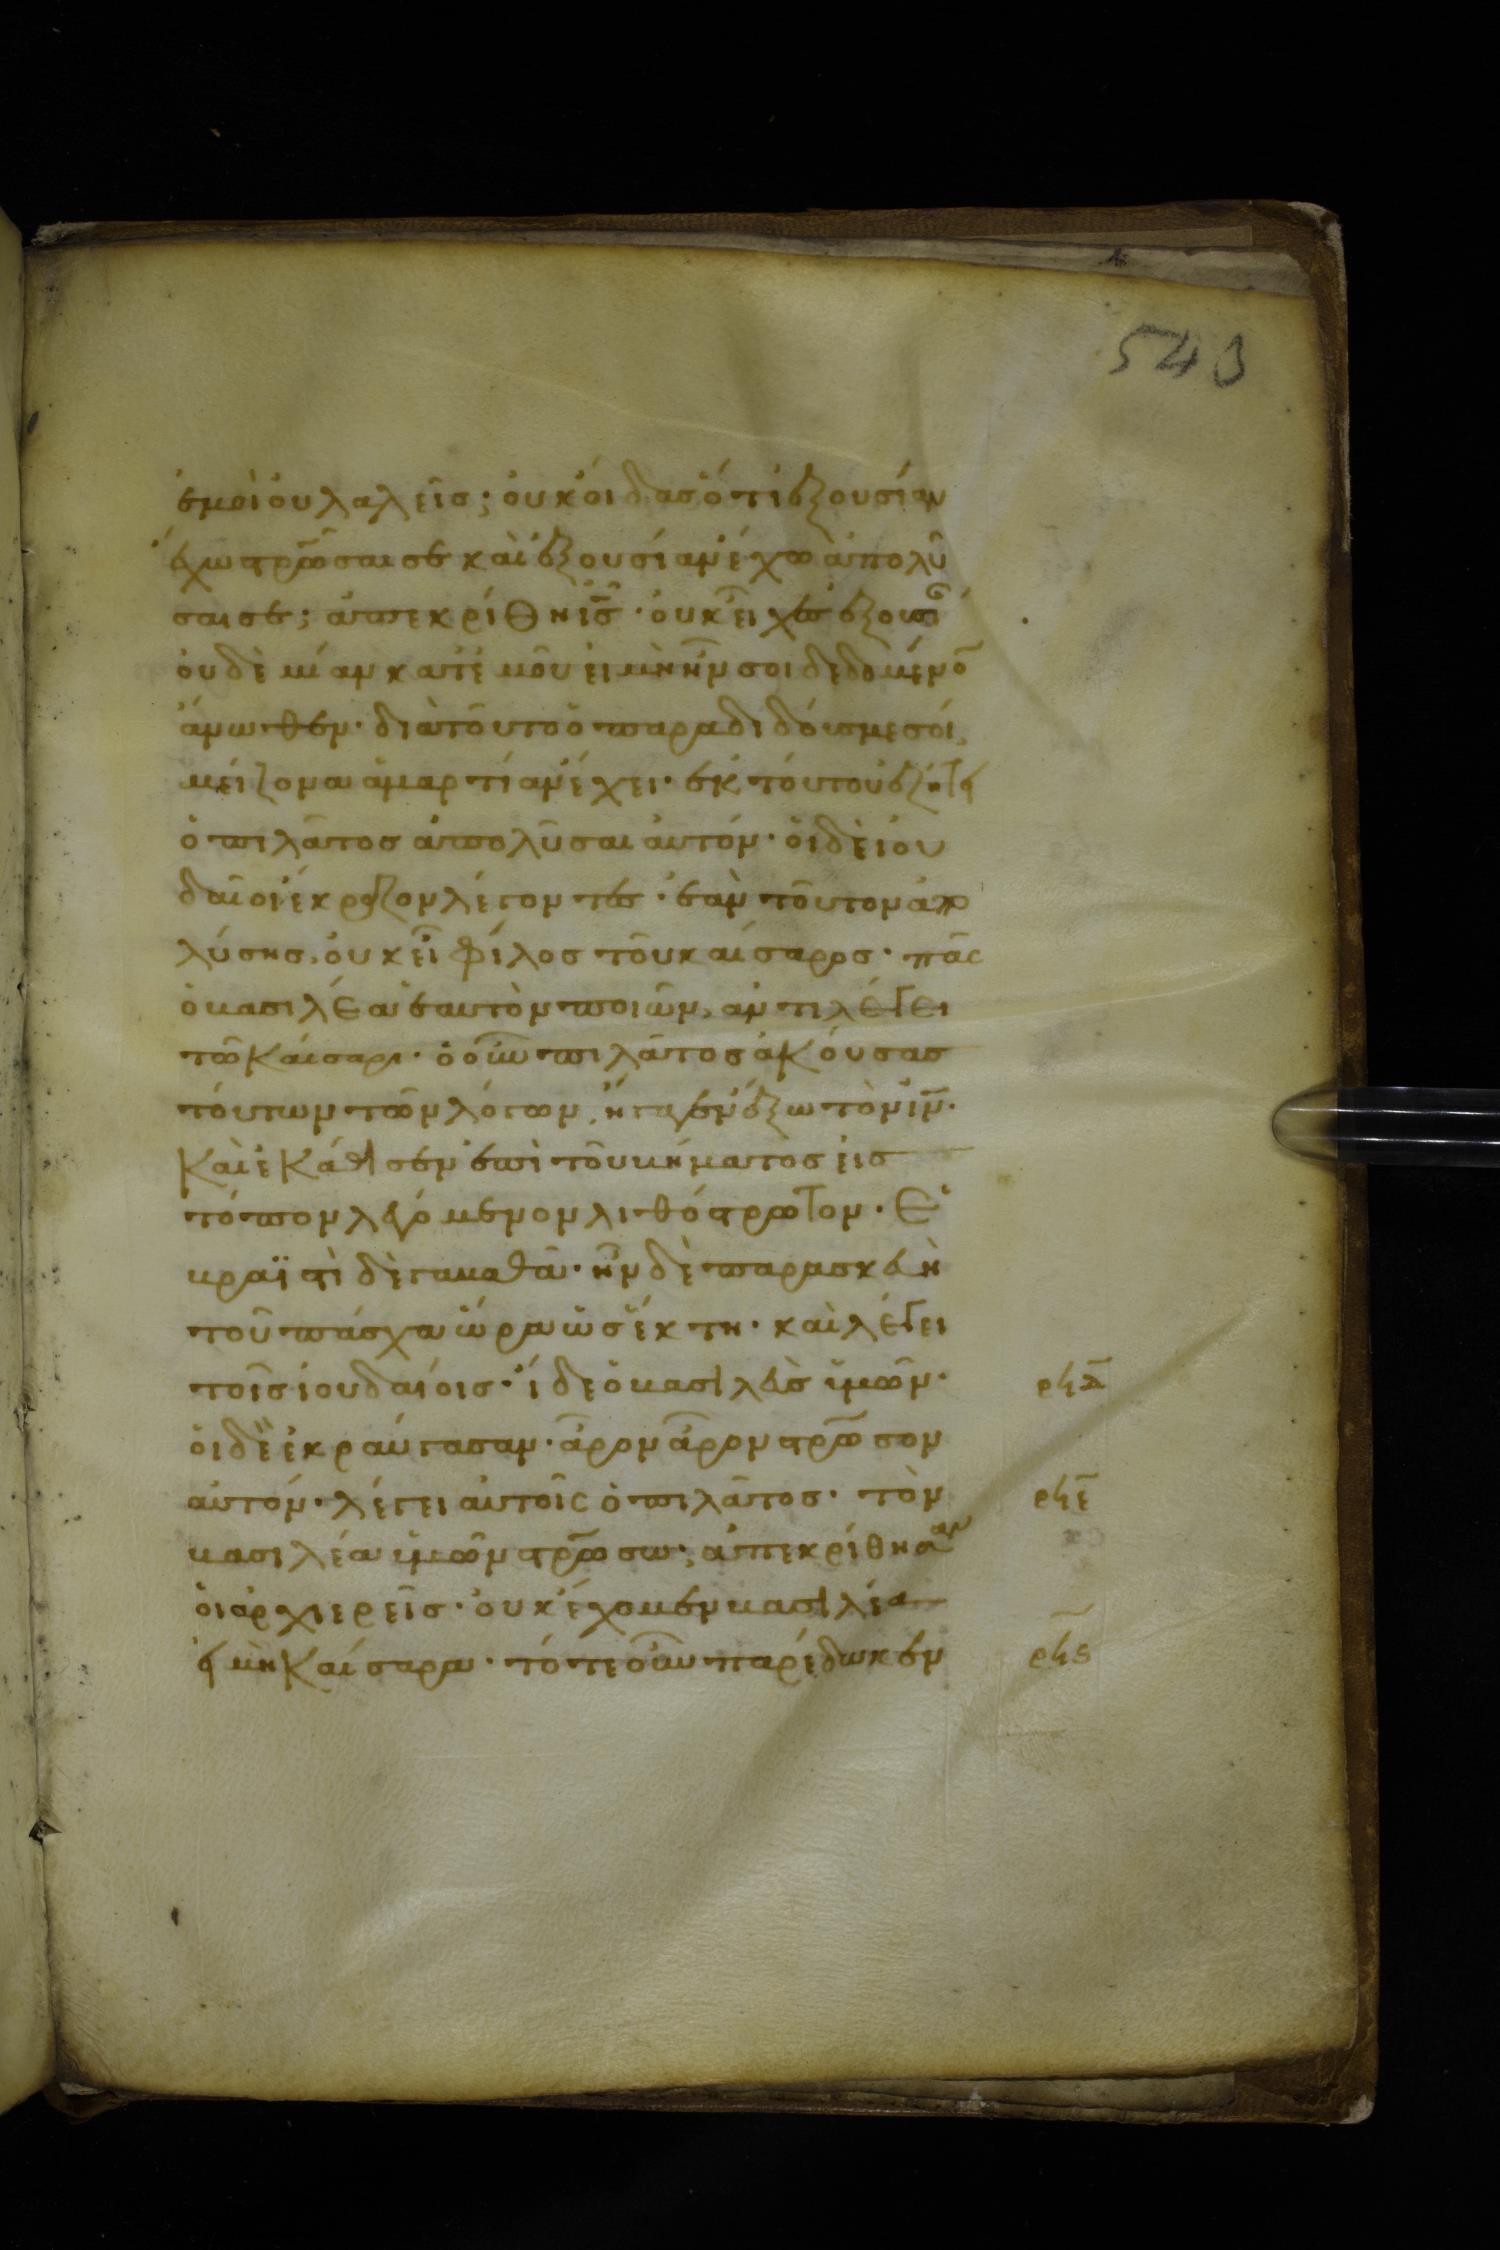 543
ἐμοὶ οὐ λαλεῖς; οὐκ οἶδας ὅτι ἐξουσίαν
ἔχω στρῶσαι σε καὶ ἐξουσίαν ἔχω ἀπολῦ
σαι σε; ἀπεκρίθη ι̅σ̅· οὐκ εἶχες ἐξουσί
οὐδὲ μίαν κατ' ἐμοῦ εἰ μὴ ἦν σοι δεδομένο̅
ἄνωθεν· διὰ τοῦτο ὁ παραδιδούς με σοί,
μείζονα ἁμαρτίαν ἔχει· ἐκ τούτου ἐζήτει
ὁ πιλᾶτος ἀπολῦσαι αὐτόν· οἱ δὲ ἰου
δαῖοι ἔκραζον λέγοντες· ἐὰν τοῦτον ἀπο
λύσης, οὐκ εἶ φίλος τοῦ καίσαρος· πᾶς
ὁ βασιλέα ἑαυτὸν ποιῶν, ἀντιλέγει
τῶ καίσαρι· ὁ οὖν πιλᾶτος ἀκούσας
τούτων τῶν λόγων, ἤγαγεν ἔξω τὸν ι̅ν̅·
καὶ ἐκάθισεν ἐπὶ τοῦ βήματος εἰς
τόπον λεγόμενον λιθόστρωτον· Ἑ
βραϊστὶ δὲ γαβαθᾶ· ἦν δὲ παρασκευὴ
τοῦ πάσχα ὥρα ὡς ἕκτη· καὶ λέγει
τοῖς ἰουδαίοις· ἴδε ὁ βασιλεὺς ὑμῶν·
ρϟδ̅
οἱ δὲ ἐκραύγασαν· ἆρον ἆρον στρῶσον
αὐτόν· λέγει αὐτοῖς ὁ πιλᾶτος· τὸν
ρϟε̅
βασιλέα ὑμῶν στρῶσω; ἀπεκρίθησαν
οἱ ἀρχιερεῖς· οὐκ ἔχομεν βασιλέα
εἰ μὴ καίσαρα· τότε οὖν παρέδωκεν
ρϟϛ